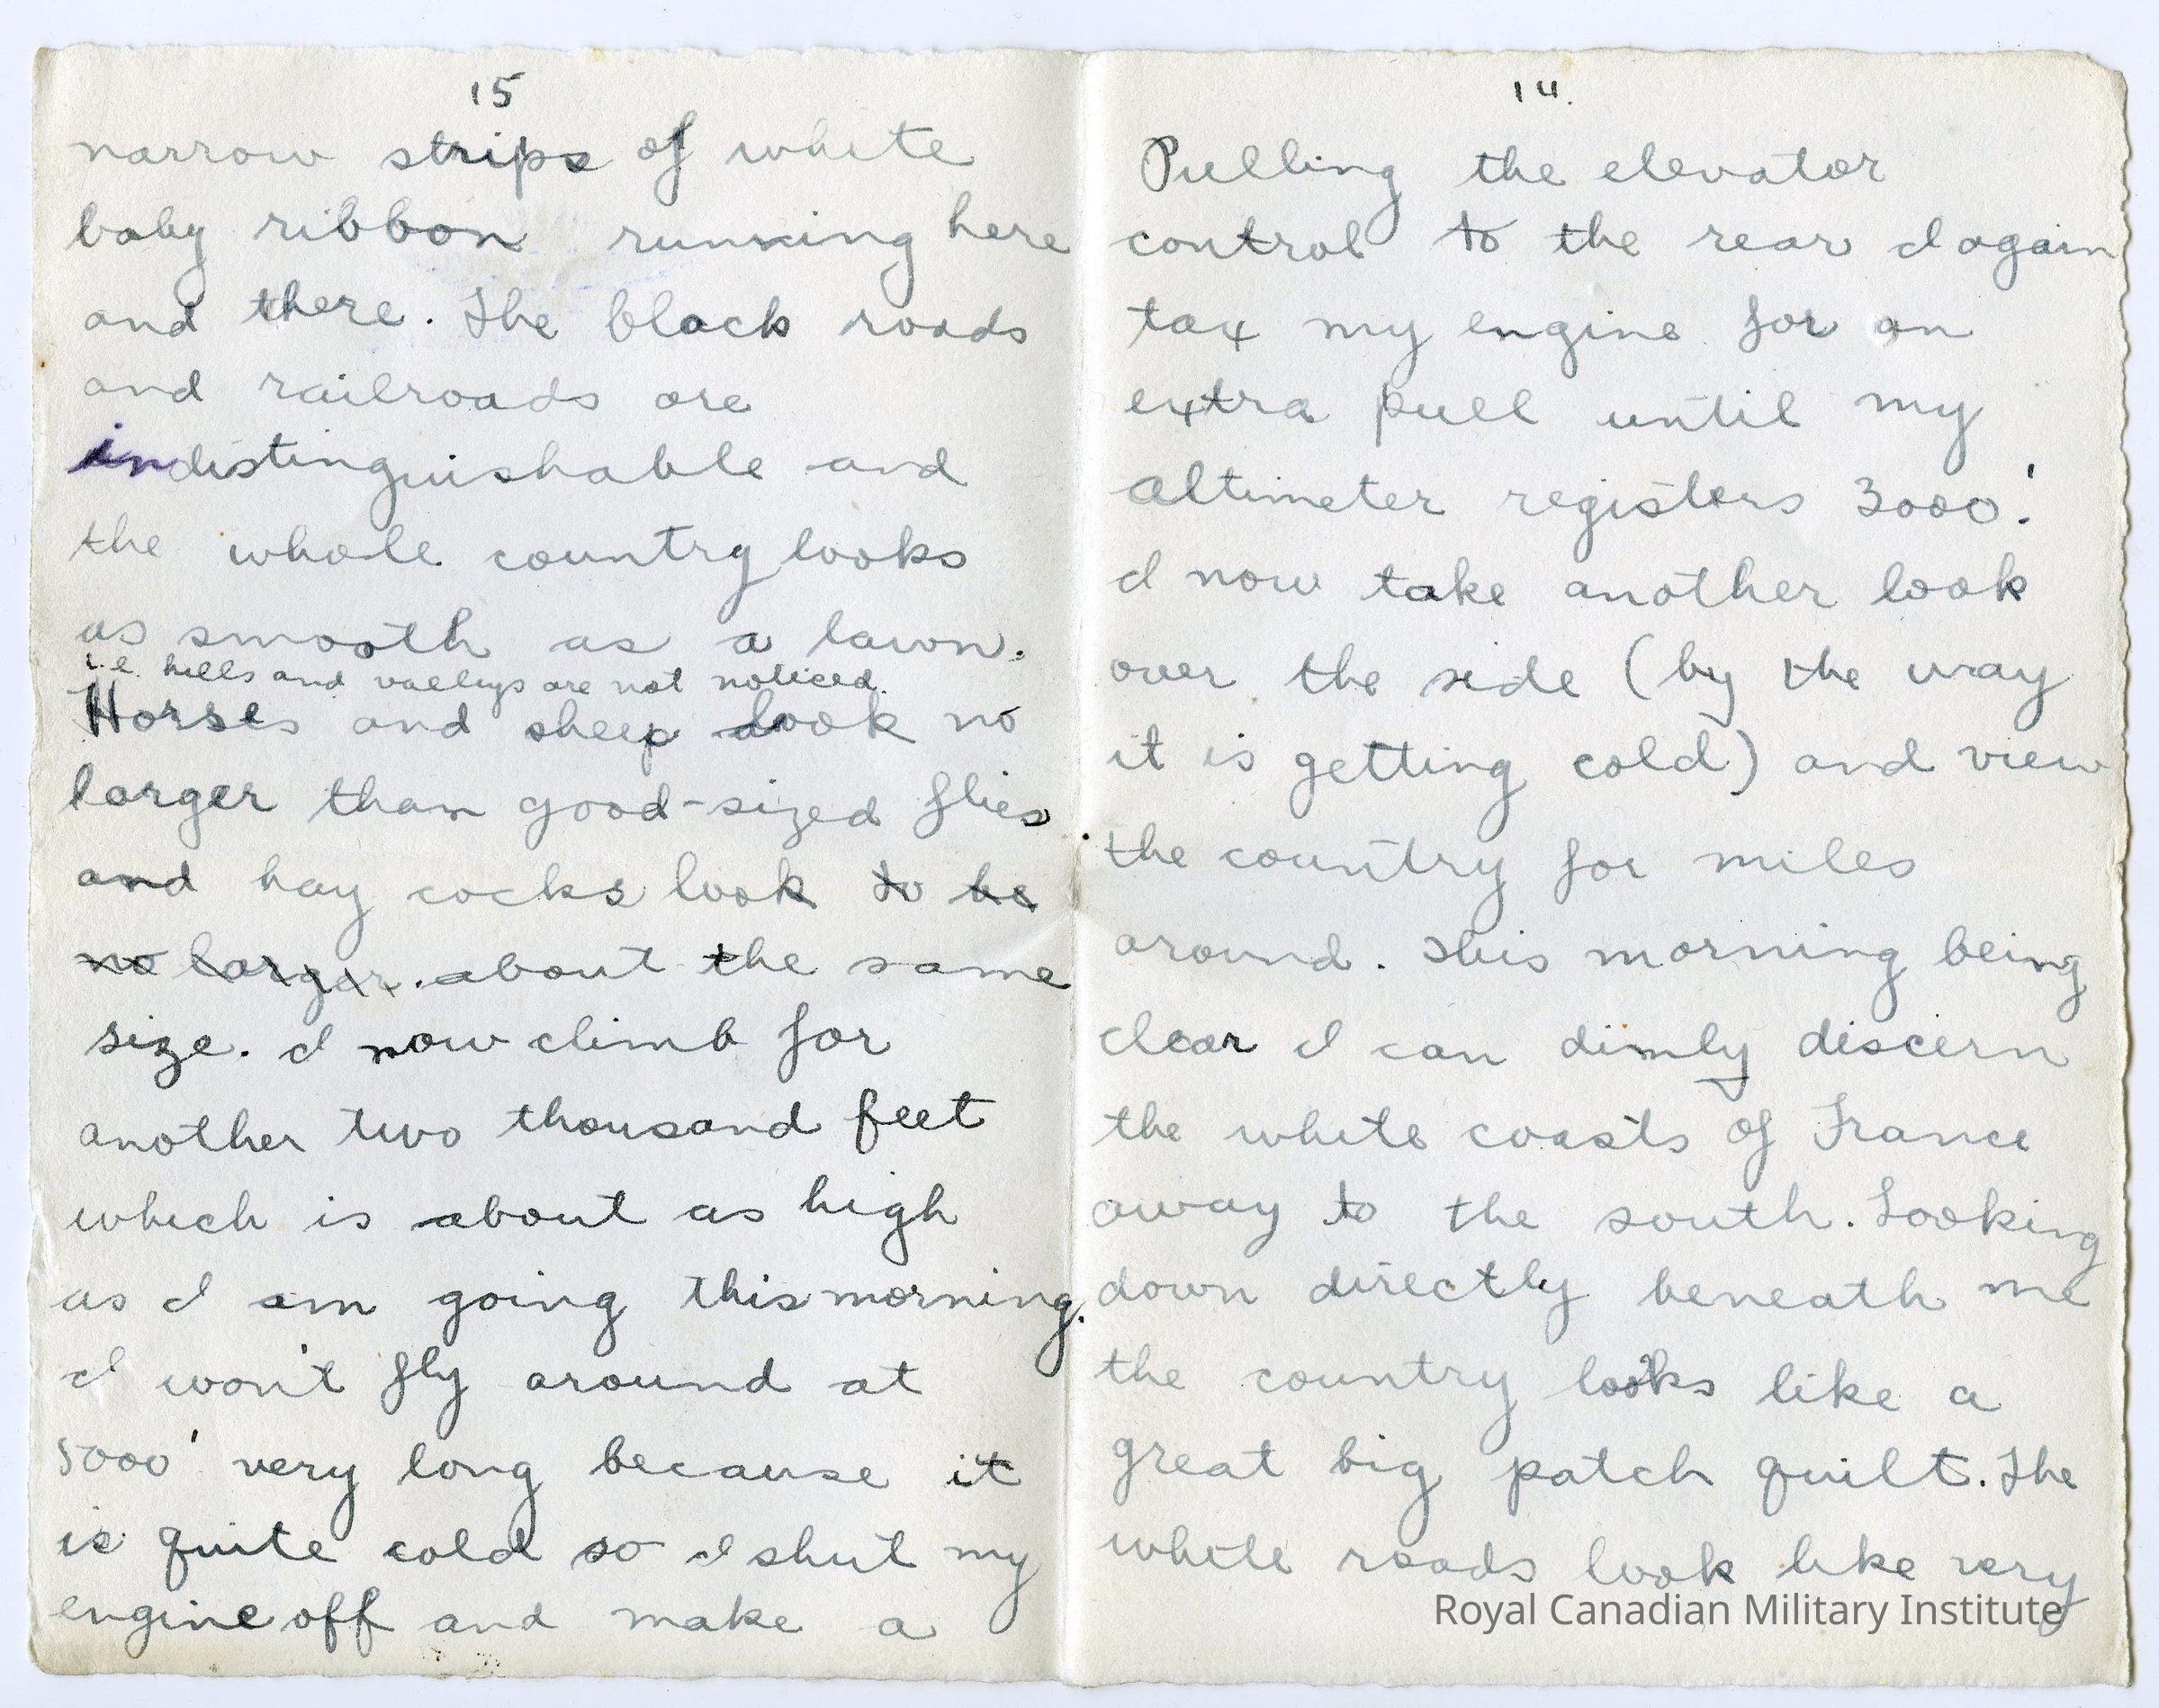 14.
Pulling the elevator
control to the rear I again
tax my engine for an
extra pull until my
altimeter registers 3000'.
I now take another look
over the side (by the way
it is getting cold) and view
the country for miles
around. This morning being
clear I can dimly discern
the white coasts of France
away to the south. Looking
down directly beneath me
the country looks like a
great big patch quilt. The
white roads look like very
15
narrow strips of white
baby ribbon running here
and there. The black roads
and railroads are
indistinguishable and
the whole country looks
as smooth as a lawn.
i.e. hills and valleys are not noticed.
Horses and sheep look no
larger than good-sized flies
and hay cocks look to be
no larger. about the same
size. I now climb for
another two thousand feet
which is about as high
as I am going this morning.
I won't fly around at
5000' very long because it
is quite cold so I shut my
engine off and make a
Royal Canadian Military Institute